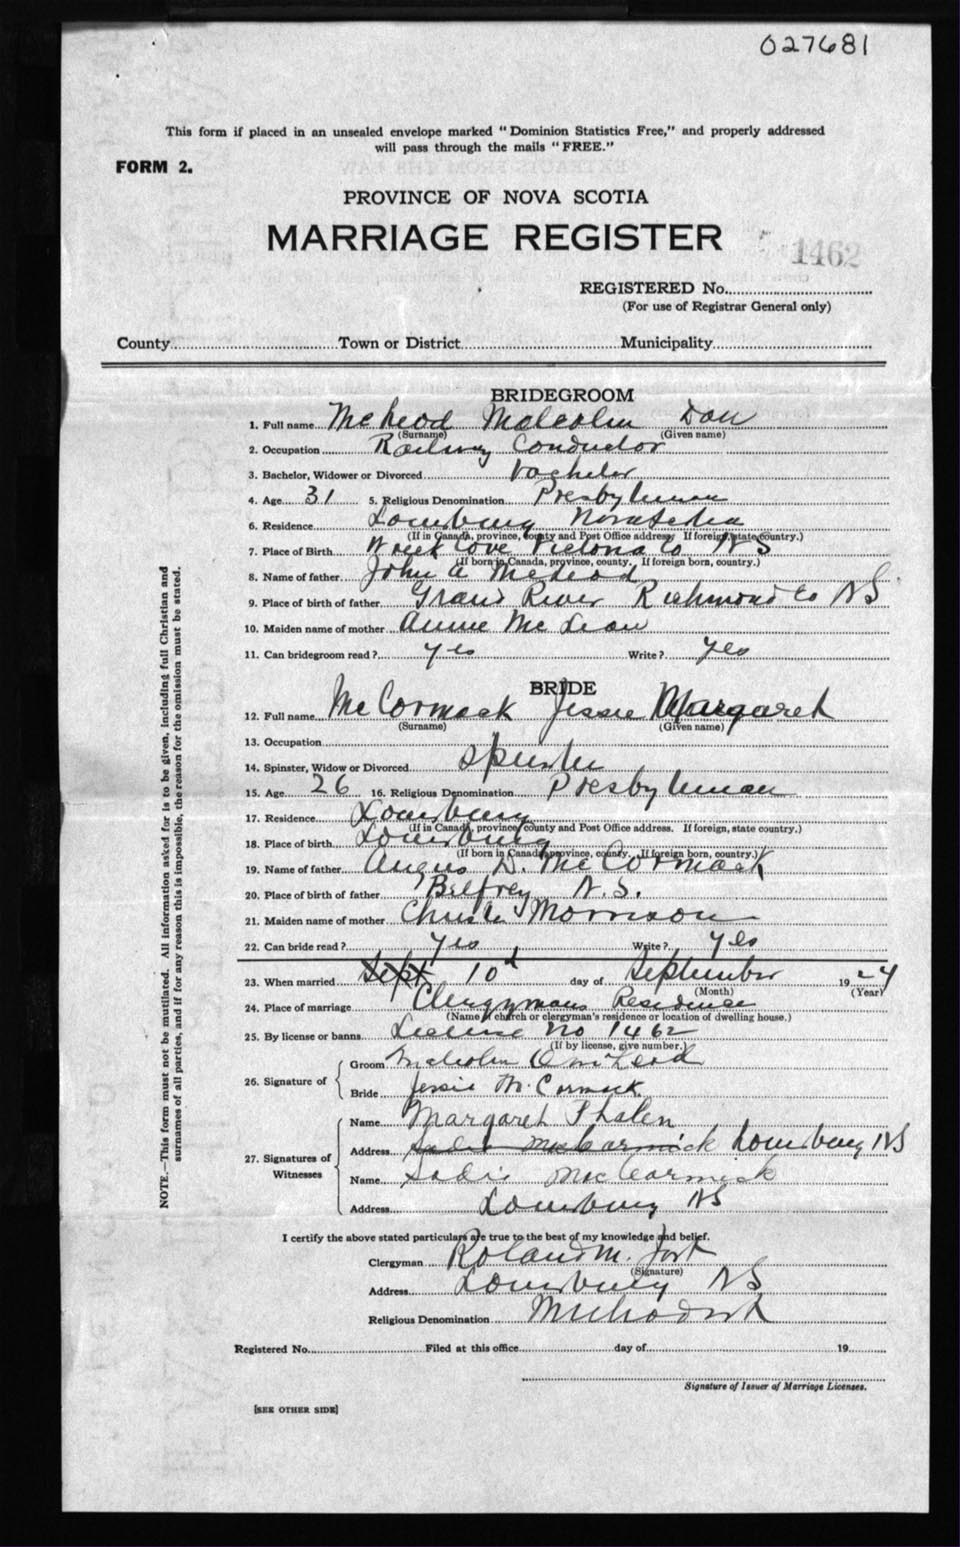 027681
This form if placed in an unsealed envelope marked "Dominion Statistics Free," and properly addressed
will pass through the mails "FREE."
FORM 2.
PROVINCE OF NOVA SCOTIA
MARRIAGE REGISTER
1462
REGISTERED No.
(For use of Registrar General only)
County Town or District Municipality
BRIDEGROOM
1. Full name McLeod Malcolm Dan
(Surname) (Given name)
2. Occupation Railway Conductor
3. Bachelor, Widower or Divorced Bachelor
4. Age 31 5. Religious Denomination Presbyterian
6. Residence Louisburg Nova Scotia
(If in Canada, province, county and Post Office address. If foreign, state country.)
7. Place of Birth Wreck Cove Victoria Co NS
(If born in Canada, province, county. If foreign born, country.)
8. Name of father John A McLeod
9. Place of birth of father Grand River Richmond Co NS
10. Maiden name of mother Annie McLean
11. Can bridegroom read? yes Write? yes
BRIDE
12. Full name McCormack Jessie Margaret
(Surname) (Given name)
13. Occupation
14. Spinster, Widow or Divorced Spinster
15. Age 26 16. Religious Denomination Presbyterian
17. Residence Louisburg
(If in Canada, province county and Post Office address. If foreign, state country.)
18. Place of birth Louisburg
(If born in Canada, province, county. If foreign born, country.)
19. Name of father Angus D. McCormack
20. Place of birth of father Belfrey N.S.
21. Maiden name of mother Christie Morrison
22. Can bride read? yes Write? yes
23. When married Sept 10th day of September 1924
(Month) (Year)
24. Place of marriage Clergymans Residence
(Name of church or clergyman's residence or location of dwelling house.)
25. By license or banns License No 1462
(If by license, give number.)
26. Signature of
Groom Malcolm D McLeod
Bride Jessie McCormack
27. Signatures of Witnesses
Name Margaret Phalen
Address Sadie MacCormick Louisburg NS
Name Sadie MacCormick
Address Louisburg NS
I certify the above stated particulars are true to the best of my knowledge and belief.
Clergyman Roland M. Jost
(Signature)
Address Louisburg NS
Religious Denomination Methodist
Registered No. Filed at this office day of 19
Signature of Issuer of Marriage Licenses.
[SEE OTHER SIDE]
NOTE.—This form must not be mutilated. All information asked for is to be given, including full Christian and
surnames of all parties, and if for any reason this is impossible, the reason for the omission must be stated.